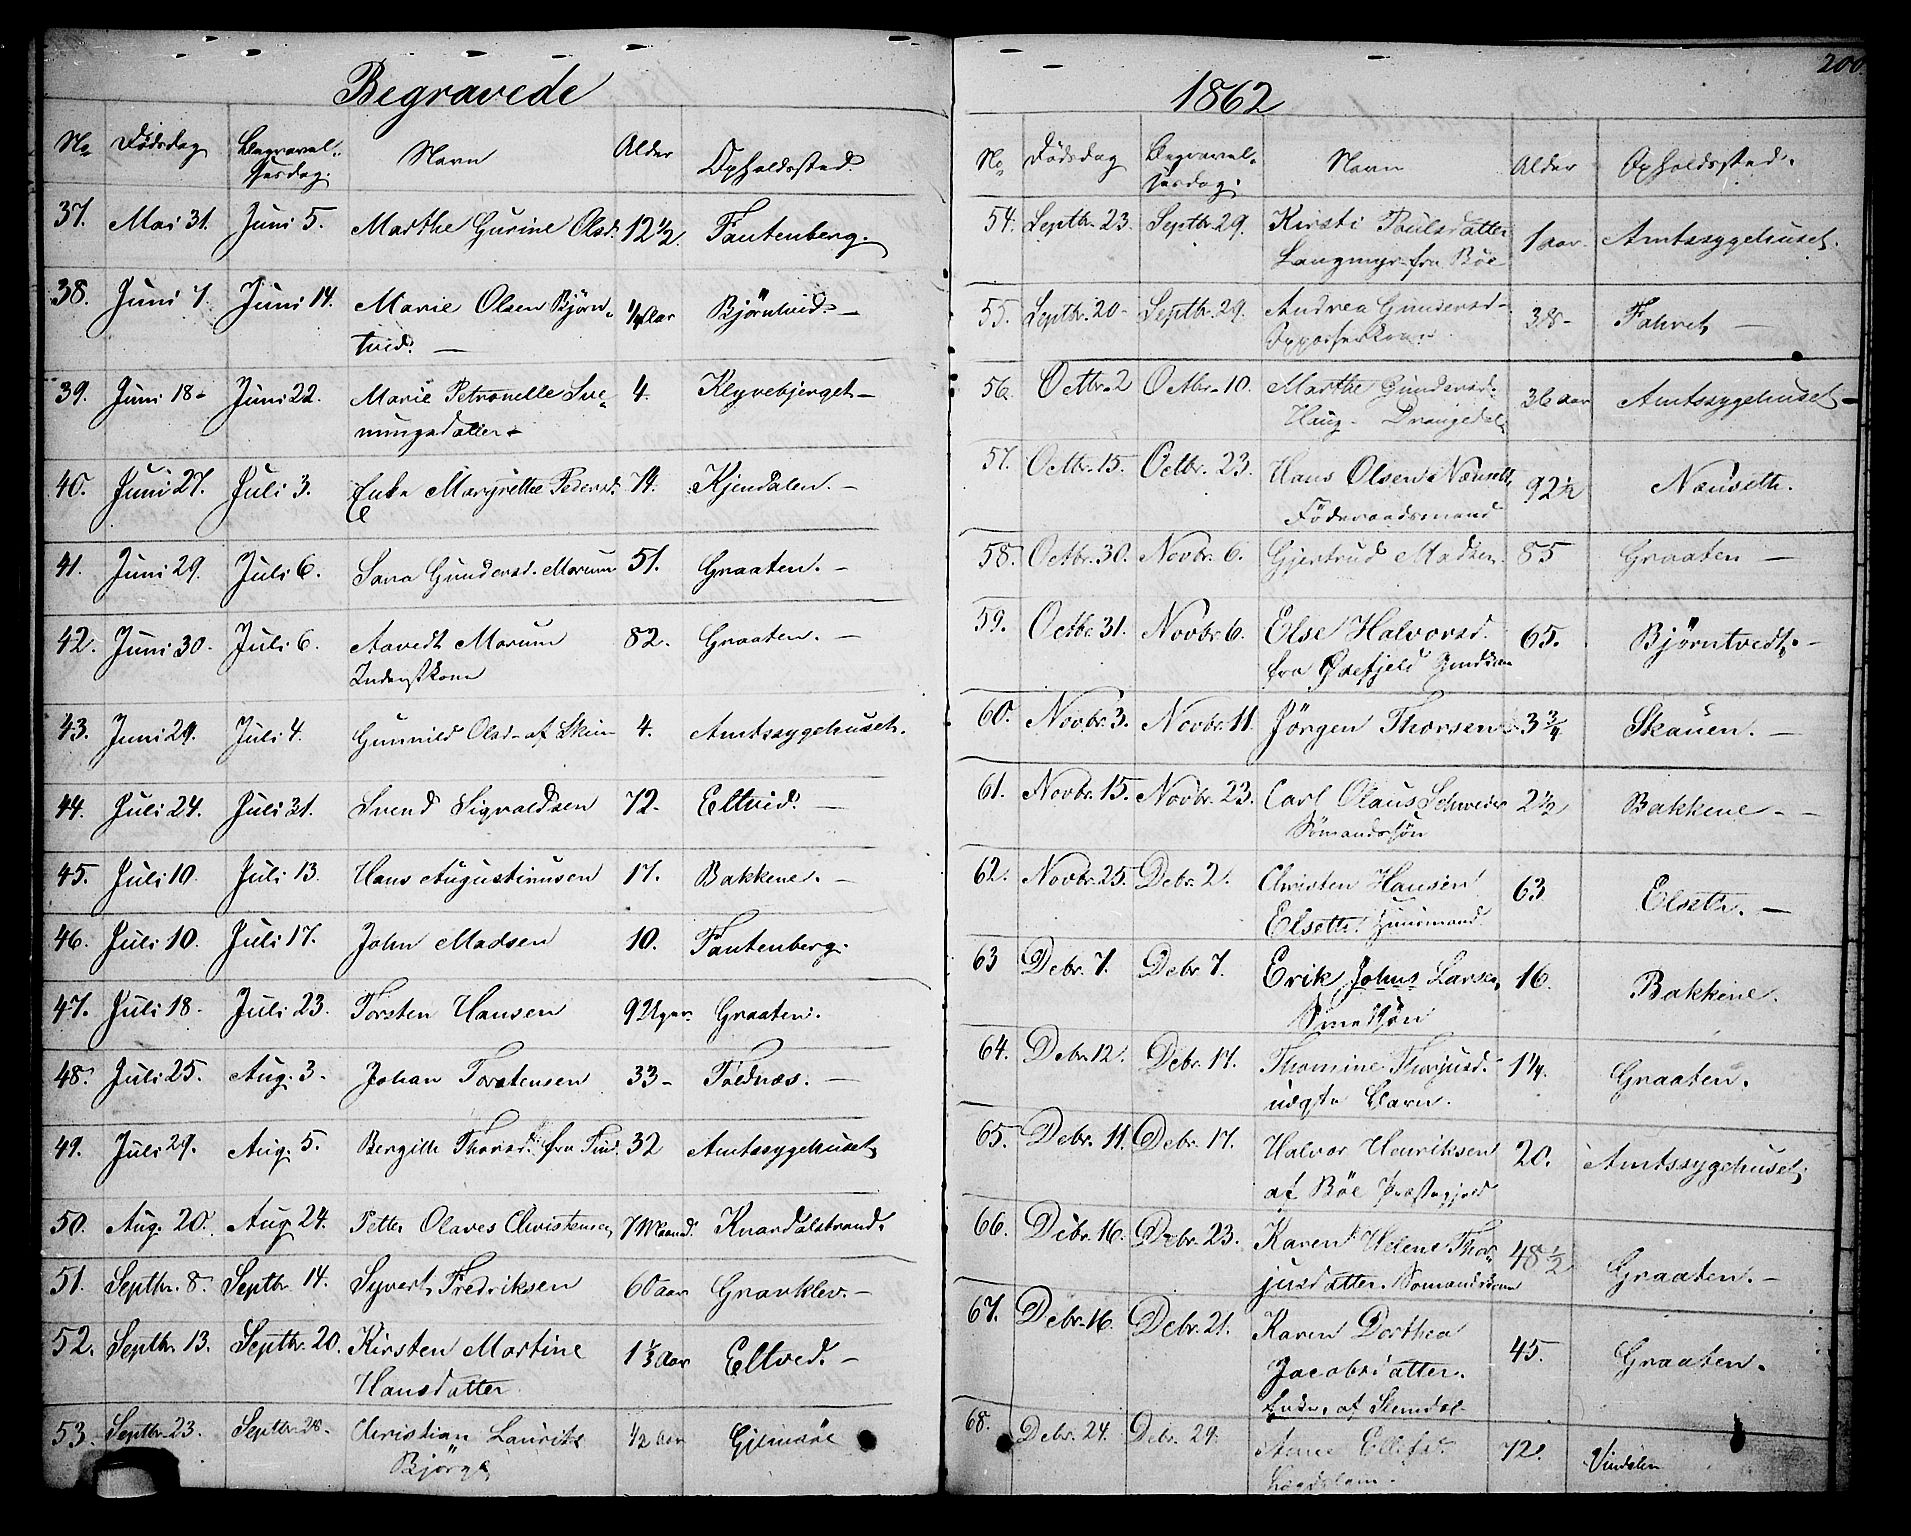 Begravede
No Dødsdag Begravel-sesdag. Navn Alder Opholdssted.
37. Mai 31. Juni 5. Marthe Gurine Olsd. 12 1/2 Fantenberg.
38. Juni 7. Juni 14. Marie Olsen Björn- Aar Björntvid. —
tvid. —
39. Juni 18 Juni 22. Marie Petronelle Sve- 4. Klyvebjerget —
nungsdatter
40. Juni 27. Juli 3. Enke Margrethe Pedersd. 74. Kjendalen. —
41. Juni 29. Juli 6. Sara Gundersd. Morum 51. Graaten. —
42. Juni 30. Juli 6. Aavedt Morum 82. Graaten. —
Inderstkone
43. Juni 29. Juli 4. Gunnild Olsd. af Skien 4. Amtssygehuset.
44. Juli 24. Juli 31. Svend Sigvaldsen 72. Eltvid. —
45. Juli 10. Juli 13. Hans Augustinusen 17. Bakkene. —
46. Juli 10. Juli 17. John Madsen 10. Fantenberg.
47. Juli 18. Juli 23. Torsten Hansen 9 Uger. Graaten.
48. Juli 25. Aug. 3. Johan Torstensen 33 — Toldnæs. —
49. Juli 29. Aug. 5. Bergith Thorsd. fra Tind. 32 Amtssygehuset
50. Aug. 20. Aug. 24. Petter Olaves Christensen 7 Maaned. Knardalstrand.
51. Septbr. 8. Septbr. 14. Syvert Fredriksen 60 aar Gravklev. —
52. Septbr. 13. Septbr. 20. Kirsten Martine 1 1/3 Aar Eltved. —
Hansdatter.
53. Septbr. 23. Septbr. 28. Christian Laurits 1/2 Aar Gjemsöe
Björge
1862
200.
No Dødsdag Begravel-sesdag. Navn Alder Opholdssted.
54. Septbr. 23. Septbr. 29. Kirsti Poulsdatter 1 aar. Amtssygehuset.
Langmyr fra Böe
55. Septbr. 20 — Septbr. 29. Andrea Gundersd — 38 — Fahret —
56. Octbr. 2 Octbr. 10. Marthe Gundersd. 36 aar Amtssygehuset —
Haug — Drangedal.
57. Octbr. 15. Octbr. 23. Hans Olsen Nænseth, 92 1/2 Nænseth.
Föderaadsmand
58. Octbr. 30. Novbr. 6. Gjertrud Madsen. 85 Graaten —
59. Octbr. 31. Novbr. 6. Else Halvorsd. 65. Björntvedt. —
fra
60. Novbr. 3. Novbr. 11. Jörgen Thorsen 3 3/4 Skauen. —
61. Novbr. 15. Novbr. 23. Carl Olaus Schweder 2 1/2 Bakkene —
Sömandssön
62. Novbr. 25. Debr. 2. Christen Hansen 63 Elseth. —
Elseth. Huusmand
63 Debr. 7. Debr. 7. Erik Johns Larsen, 16. Bakkene.
Smedsön
64. Debr. 12. Debr. 17. Thomine Thorjusd. 14. Graaten.
uægte Barn.
65. Debr. 11. Debr. 17. Halvor Henriksen 20. Amtssygehuset,
af Böe Præstegjeld
66. Debr. 16. Debr. 23. Karen Helene Thor- 48 1/2 Graaten. —
jusdatter. Sömandskone
67. Debr. 16. Debr. 21. Karen Dorthea 45. Graaten.
Jacobsdatter.
Enke, af Slemdal
68. Debr. 24. Debr. 29. Anne Ellefsd. 72. Vindalen